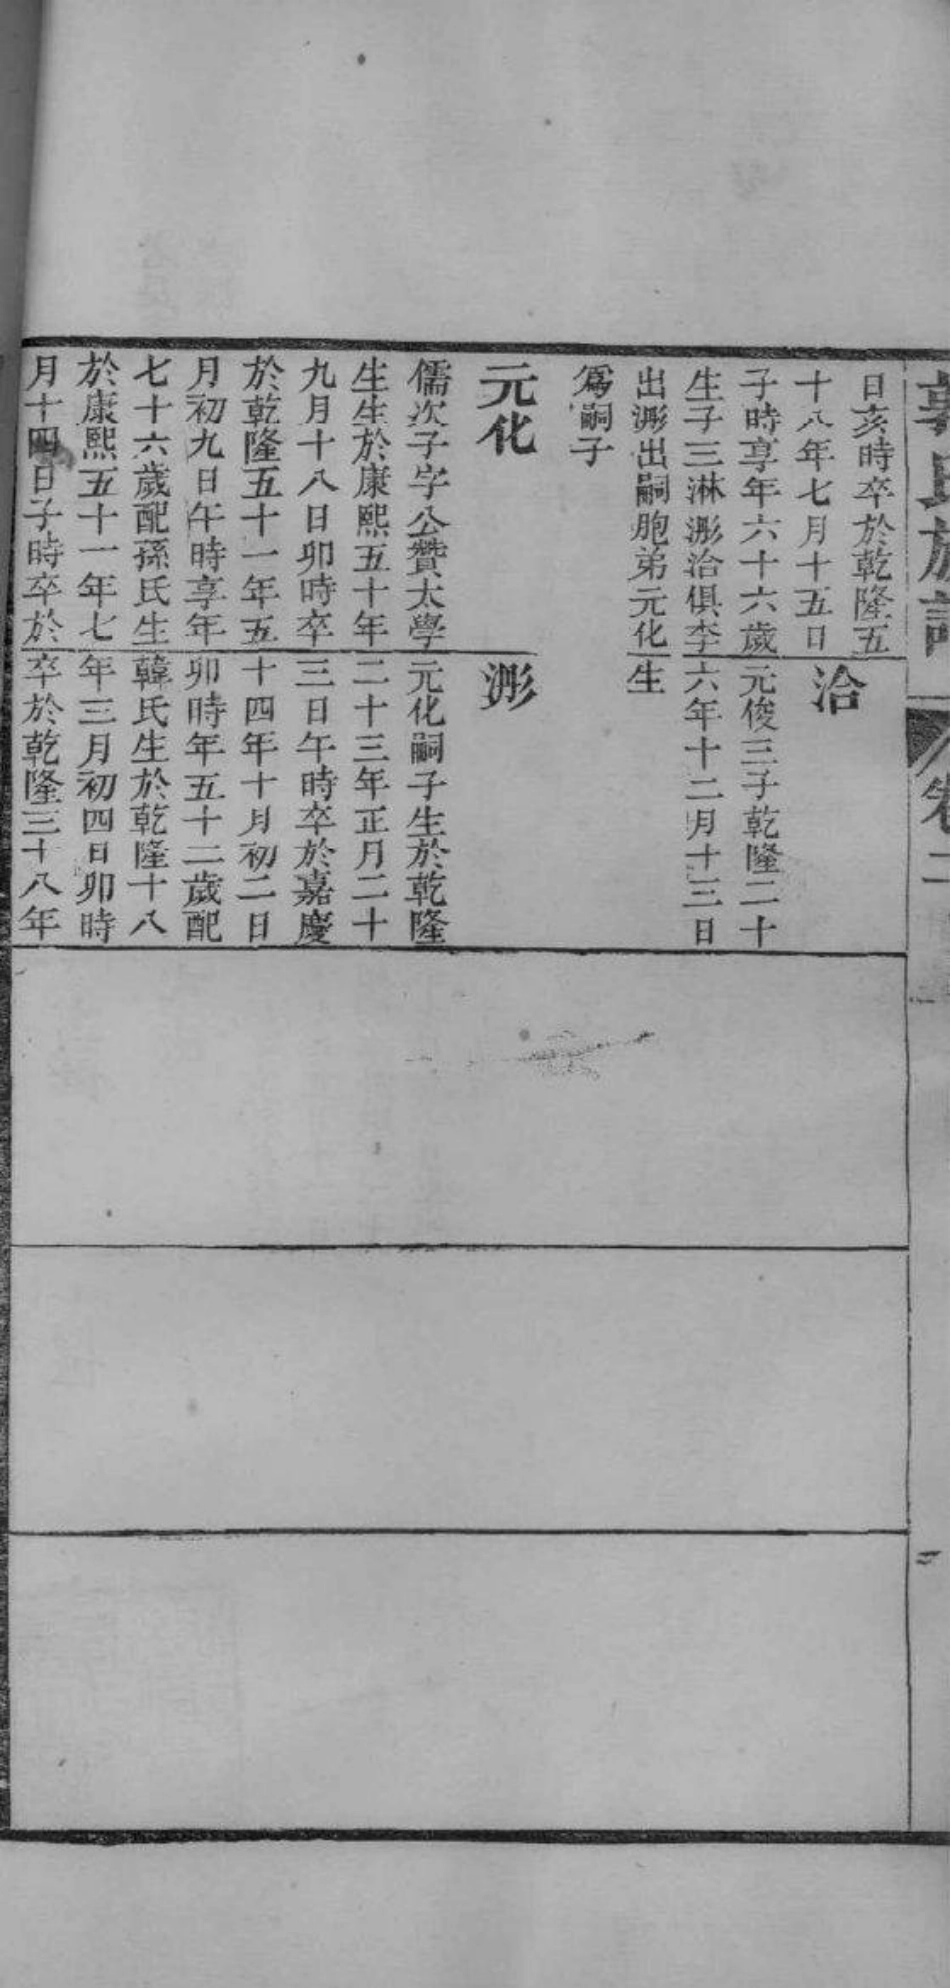 氏族譜
卷二
日亥時卒於乾隆五
十八年七月十五日
子時享年六十六歲
生子三淋浵洽俱李
出浵出嗣胞弟元化
爲嗣子
元化
儒次子字公贊太學
生生於康熙五十年
九月十八日卯時卒
於乾隆五十一年五
月初九日午時享年
七十六歲配孫氏生
於康熙五十一年七
月十四日子時卒於
洽
元俊三子乾隆二十
六年十二月十三日
生
浵
元化嗣子生於乾隆
二十三年正月二十
三日午時卒於嘉慶
十四年十月初二日
卯時年五十二歲配
韓氏生於乾隆十八
年三月初四日卯時
卒於乾隆三十八年